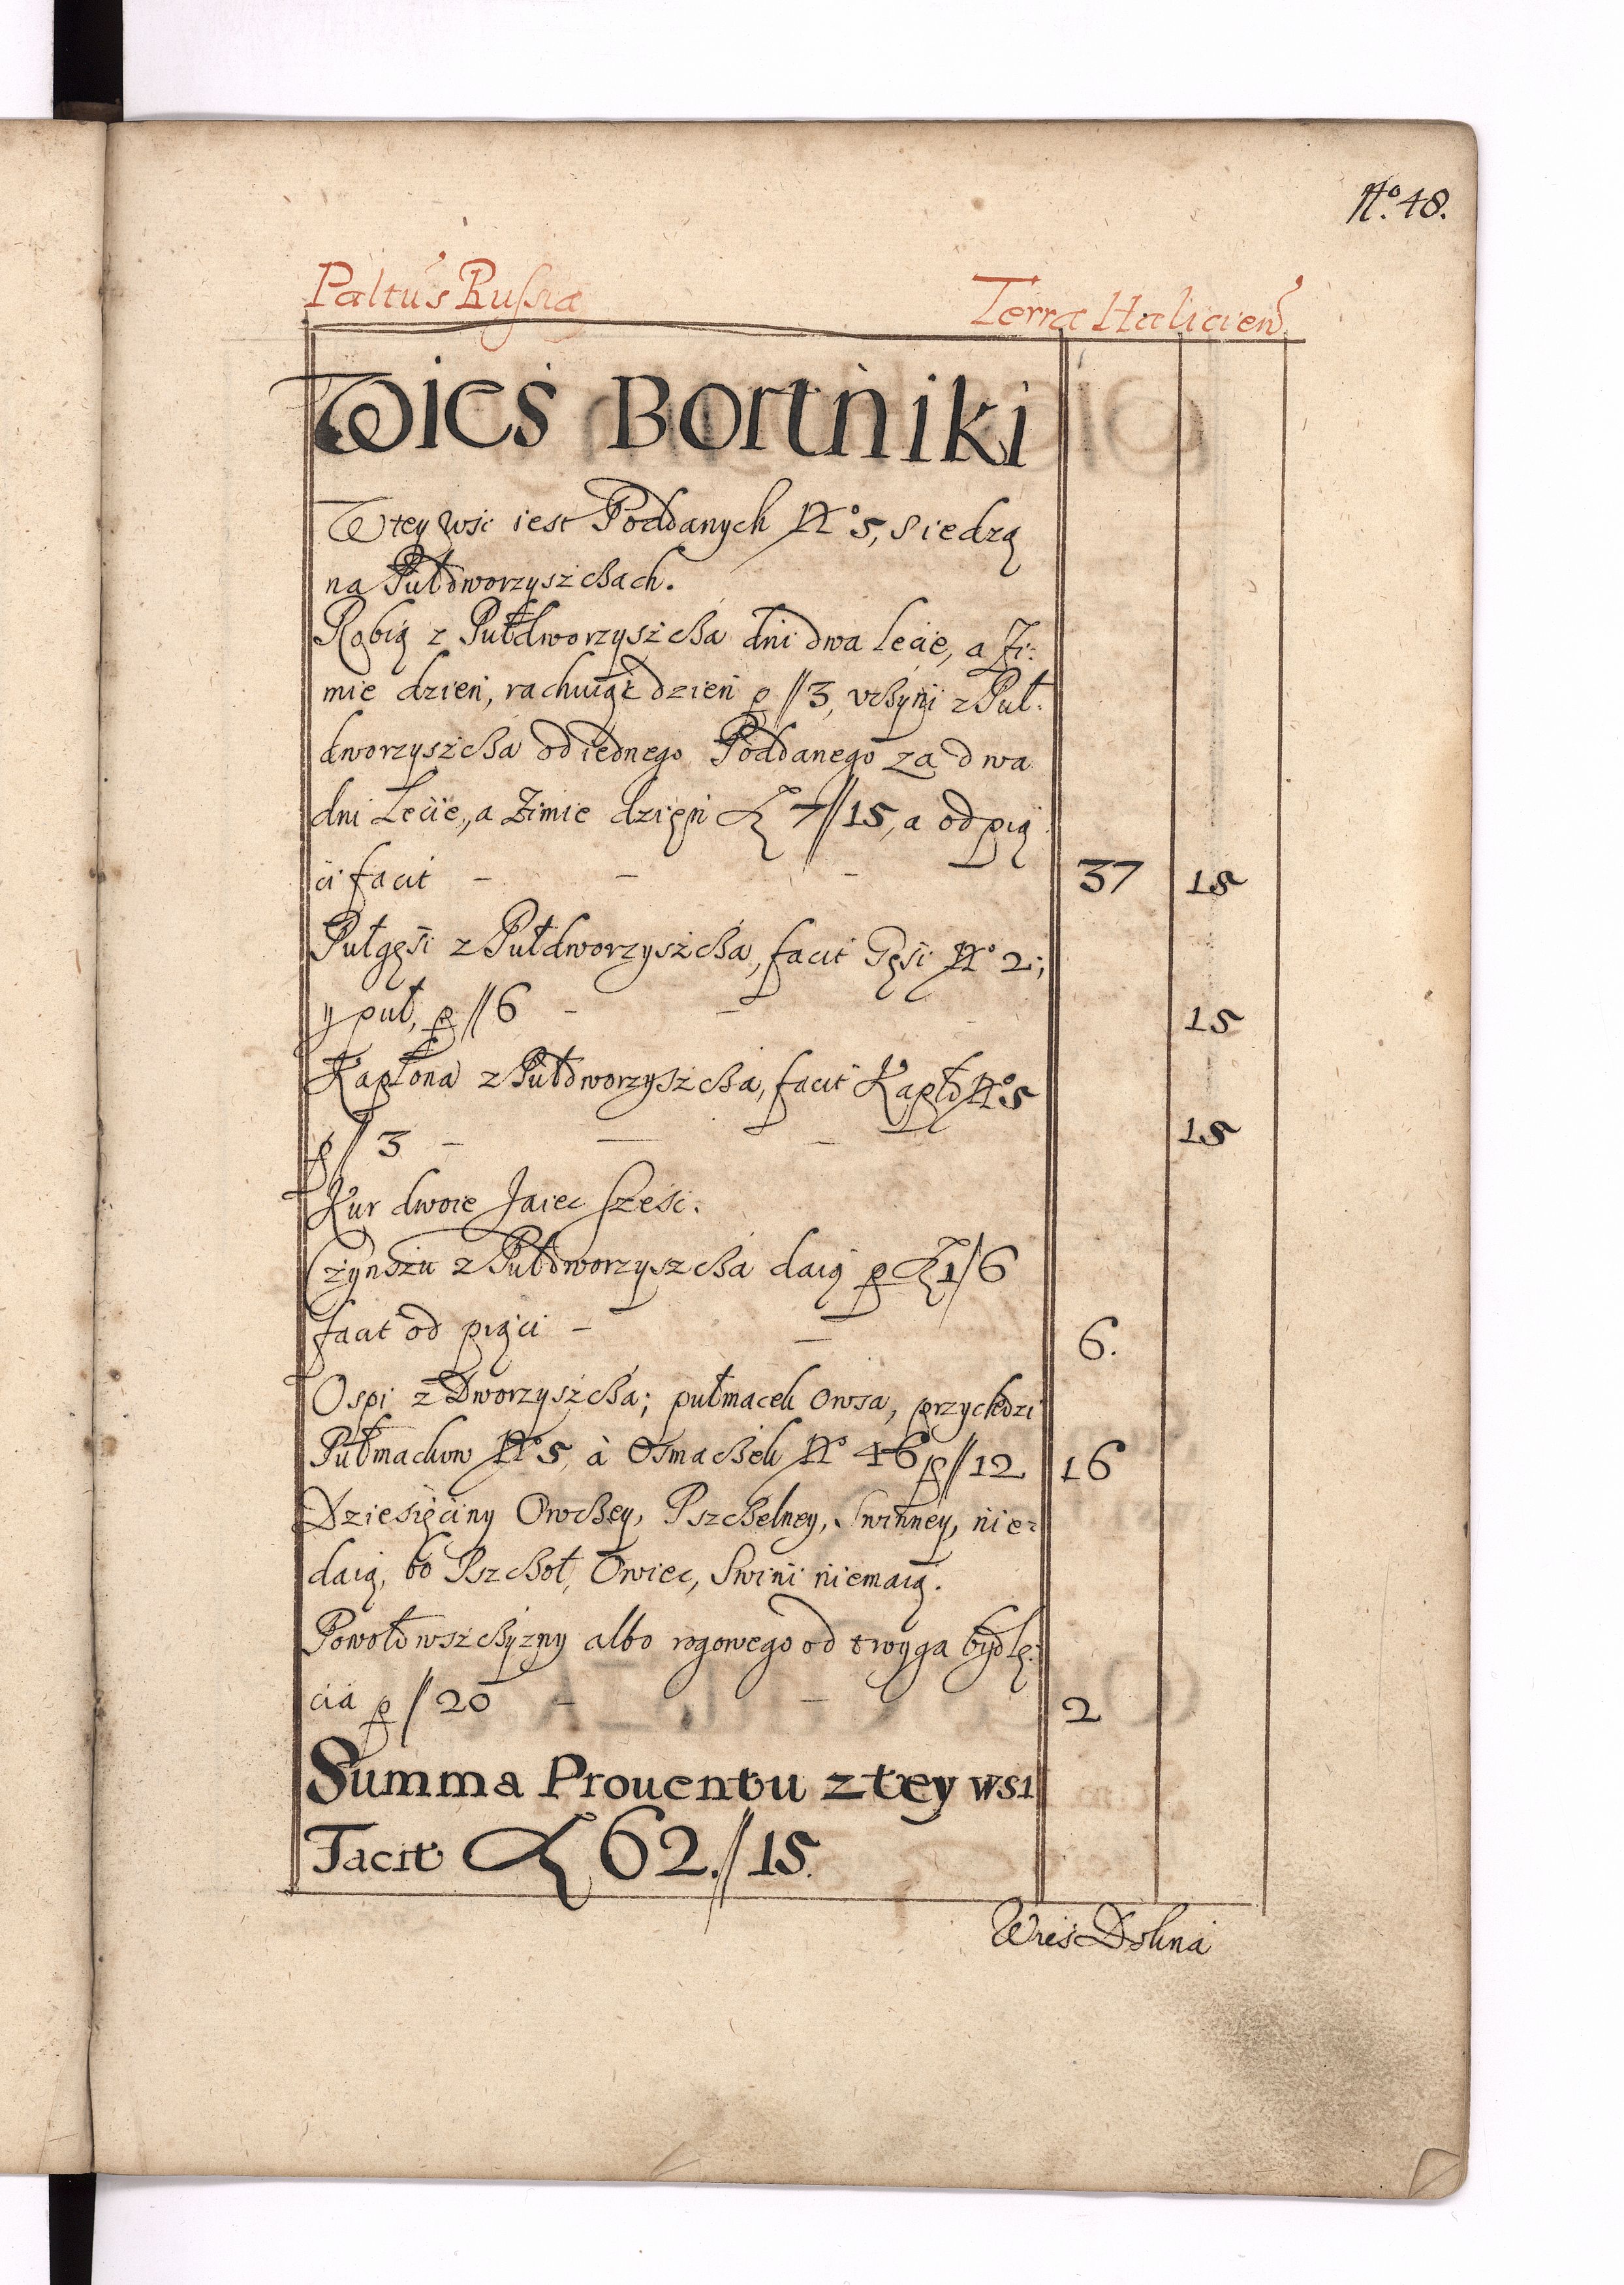 No. 48.
Paltus Russiæ Terra Halicien
Wieś Bortniki
W tey wsi iest Poddanych No 5, siedzą
na Pułdworzyszczach.
Robią z Pułdworzyszcza dni dwa lecie, a Zi:
mie dzien, rachuiąc dzien p // 3, vczyni z Puł:
dworzyszcza od iednego Poddanego za dwa
dni Lecie, a Zimie dzien 7 // 15, a od pią
ci facit - - - 37 15
Pułgęsi z Pułdworzyszcza, facit Gęsi No 2;
y puł, p // 6 - - 15
Kapłona z Pułdworzyszcza, facit Kapło No 5
p // 3 - - - 15
Kur dwoie Jaiec sześć.
Czynszu z Pułdworzyszcza daią p 1 / 6
facit od piąci - - 6.
Ospi z Dworzyszcza; pułmacek Owsa, przychodzi
Pułmackow No 5, à Osmaczek No 46 p // 12 16
Dziesięciny Owczey, Pszczelney, Swinney, nie:
daią, bo Pszczoł, Owiec, Swini niemaią.
Powołowszczyzny albo rogowego od troyga bydlę:
cia p // 20 - - 2
Summa Prouentu z tey wsi
Facit 62. // 15.
Wies Dolina